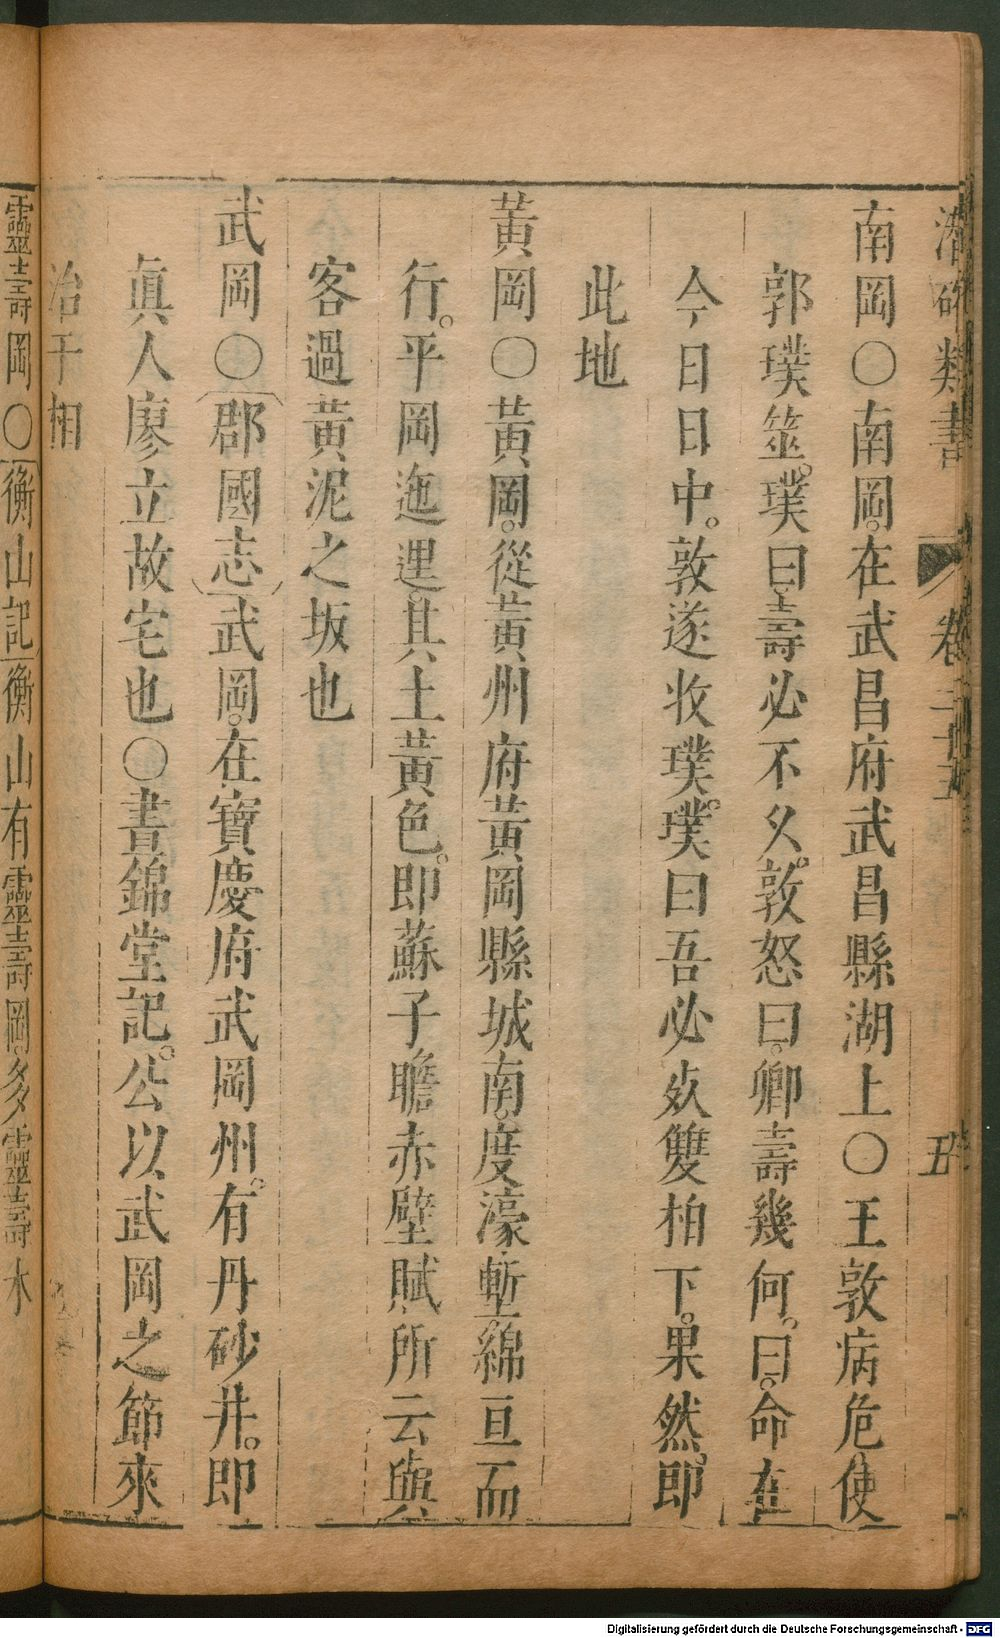 潛確類書 卷三十五 五
南岡〇南岡。在武昌府武昌縣湖上〇王敦病危使
郭璞筮。璞曰。壽必不久。敦怒曰。卿壽幾何。曰。命在
今日日中。敦遂收璞。璞曰吾必死雙柏下。果然。即
此地
黃岡〇黃岡。從黃州府黃岡縣城南。度濠塹綿亘而
行。平岡迤邐。其土黃色。即蘇子瞻赤壁賦所云與
客過黃泥之坂也
武岡〇郡國志武岡。在寶慶府武岡州。有丹砂井。即
眞人廖立故宅也〇晝錦堂記。公以武岡之節來
治于相
靈壽岡〇衡山記衡山有靈壽岡。多靈壽木
Digitalisierung gefördert durch die Deutsche Forschungsgemeinschaft - DFG